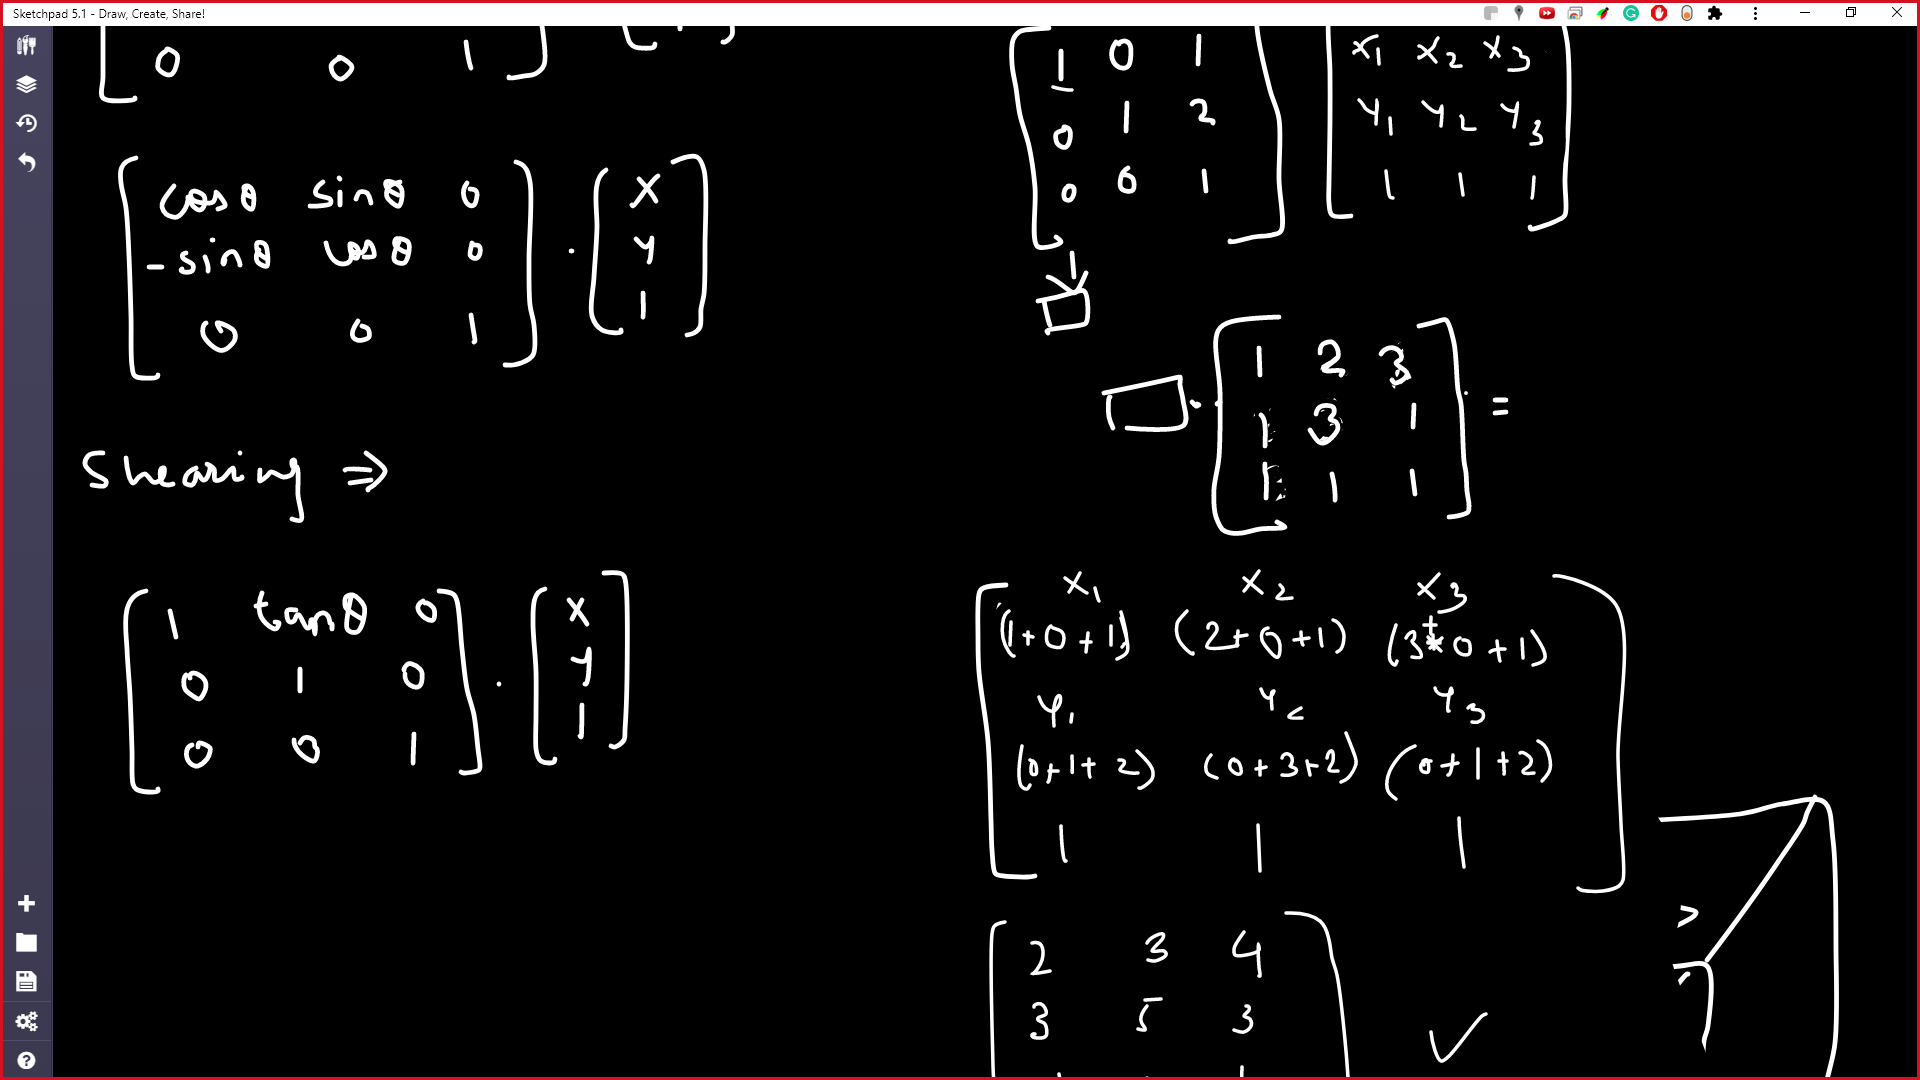 Sketchpad 5.1 - Draw, Create, Share!
0 0 1
cosθ sinθ 0
-sinθ cosθ 0
0 0 1
.
x
y
1
Shearing ⇒
1 tanθ 0
0 1 0
0 0 1
.
x
y
1
1 0 1
0 1 2
0 0 1
x1 x2 x3
y1 y2 y3
1 1 1
1 2 3
1 3 1
1 1 1
=
x1 x2 x3
(1+0+1) (2+0+1) (3+0+1)
y1 y2 y3
(0+1+2) (0+3+2) (0+1+2)
1 1 1
2 3 4
3 5 3